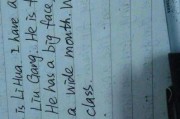 is Li Hua I have a
Liu Gang. He is t
He has a big face,
a wide mouth. W
class.